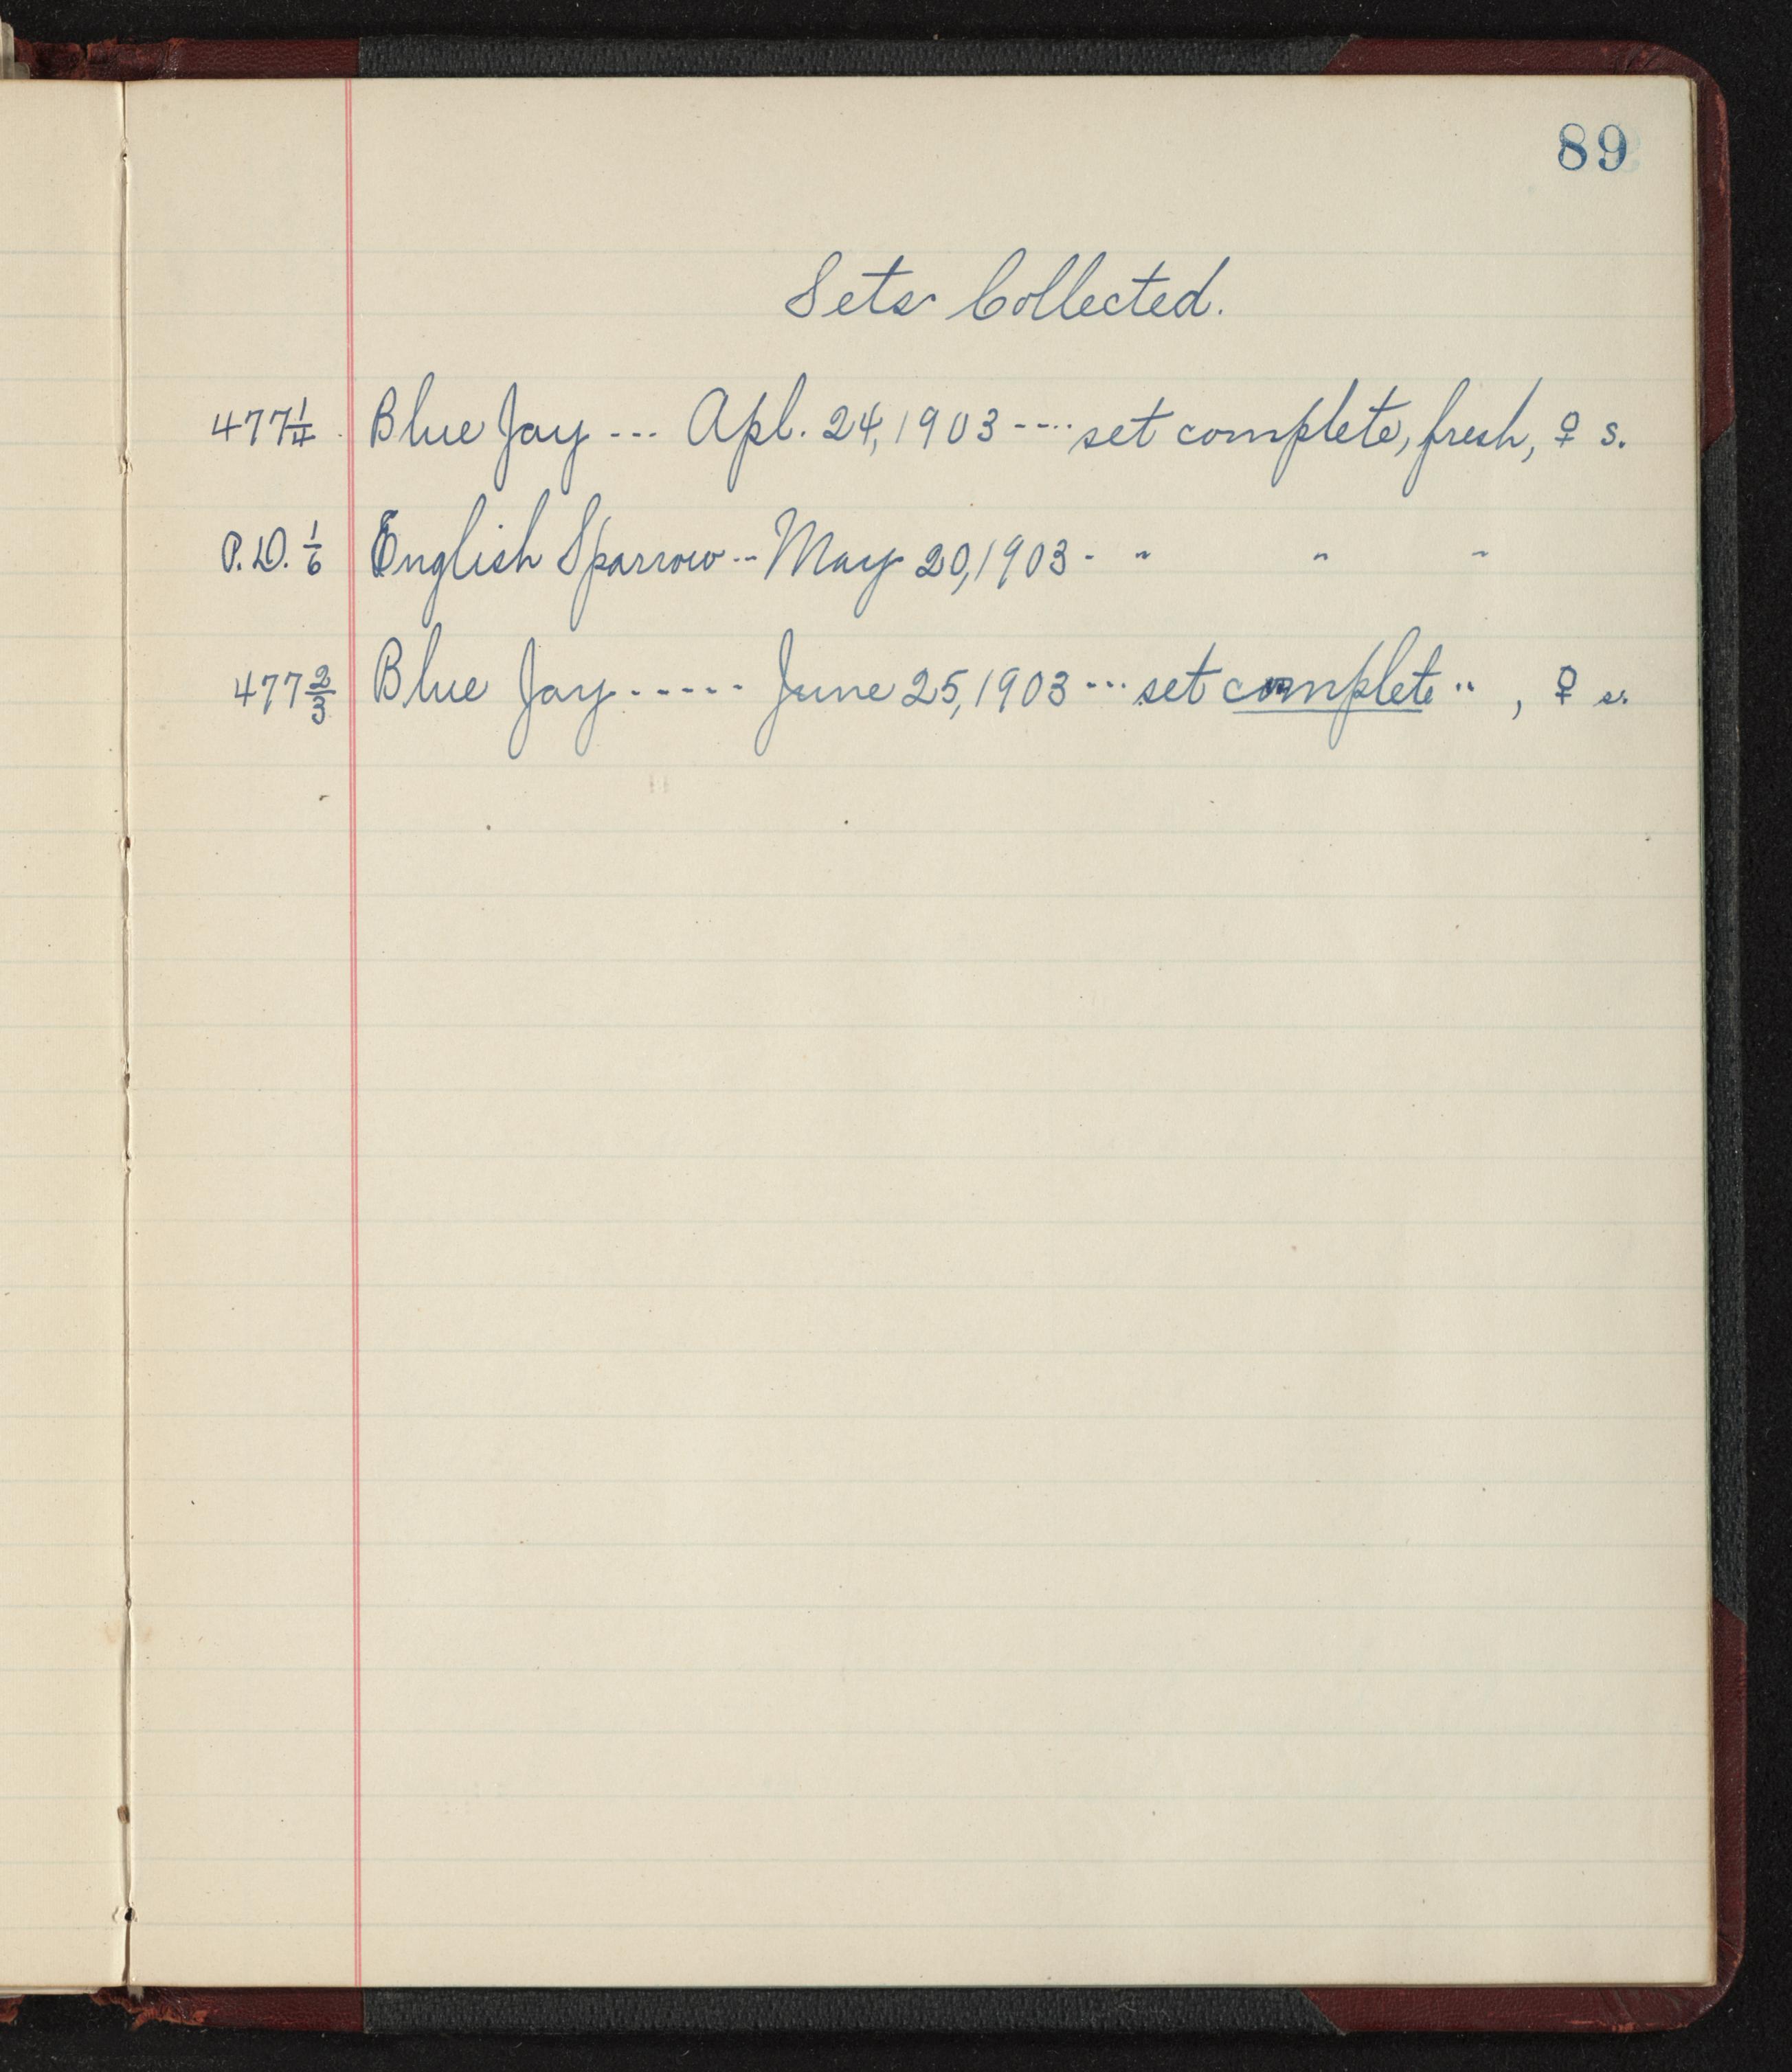 89
Sets Collected.
477 1/4 Blue Jay --- Apl. 24, 1903 ---- set complete, fresh, ♀ s.
P.D. 1/6 English Sparrow -- May 20, 1903 - " " "
477 2/3 Blue Jay ----- June 25, 1903 --- set complete " , ♀ s.